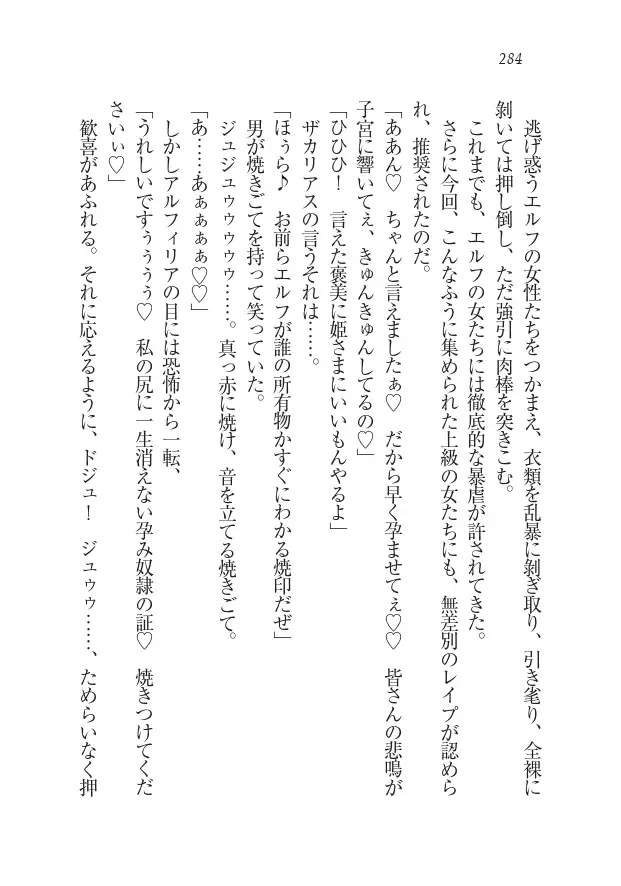 284
逃げ惑うエルフの女性たちをつかまえ、衣類を乱暴に剝ぎ取り、引き毟り、全裸に
剝いては押し倒し、ただ強引に肉棒を突きこむ。
これまでも、エルフの女たちには徹底的な暴虐が許されてきた。
さらに今回、こんなふうに集められた上級の女たちにも、無差別のレイプが認めら
れ、推奨されたのだ。
「ああん♡　ちゃんと言えましたぁ♡　だから早く孕ませてぇ♡♡　皆さんの悲鳴が
子宮に響いてぇ、きゅんきゅんしてるの♡」
「ひひひ！　言えた褒美に姫さまにいいもんやるよ」
ザカリアスの言うそれは……。
「ほぅら♪　お前らエルフが誰の所有物かすぐにわかる焼印だぜ」
男が焼きごてを持って笑っていた。
ジュジュゥゥゥゥゥ……。真っ赤に焼け、音を立てる焼きごて。
「あ……あぁぁぁぁ♡♡」
しかしアルフィリアの目には恐怖から一転、
「うれしいですぅぅぅぅ♡　私の尻に一生消えない孕み奴隷の証♡　焼きつけてくだ
さいぃ♡」
歓喜があふれる。それに応えるように、ドジュ！　ジュゥゥ……、ためらいなく押